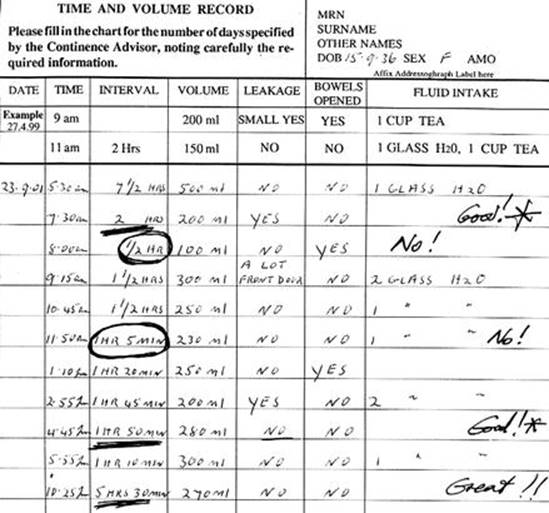 TIME AND VOLUME RECORD
Please fill in the chart for the number of days specified
by the Continence Advisor, noting carefully the re-
quired information.
MRN
SURNAME
OTHER NAMES
DOB 15-9-36 SEX F AMO
Affix Addressograph Label here
DATE TIME INTERVAL VOLUME LEAKAGE BOWELS OPENED FLUID INTAKE
Example 27.4.99 9 am 200 ml SMALL YES YES 1 CUP TEA
11 am 2 Hrs 150 ml NO NO 1 GLASS H20, 1 CUP TEA
23.9.01 5.30am 7 1/2 HRS 500 ml NO NO 1 GLASS H2O
7.30am 2 HRS 200 ml YES NO Good! *
8.00am 1/2 HR 100 ml NO YES No!
9.15am 1 1/2 HRS 300 ml A LOT FRONT DOOR NO 2 GLASS H2O
10.45am 1 1/2 HRS 250 ml NO NO 1 " "
11.50am 1 HR 5 MIN 230 ml NO NO 1 " " No!
1.10pm 1 HR 20 MIN 250 ml NO YES
2.55pm 1 HR 45 MIN 200 ml YES NO 2 " "
4.45pm 1 HR 50 MIN 280 ml NO NO Good! *
5.55pm 1 HR 10 MIN 300 ml NO NO 1 " "
10.25pm 5 HRS 30 MIN 270 ml NO NO Great!!